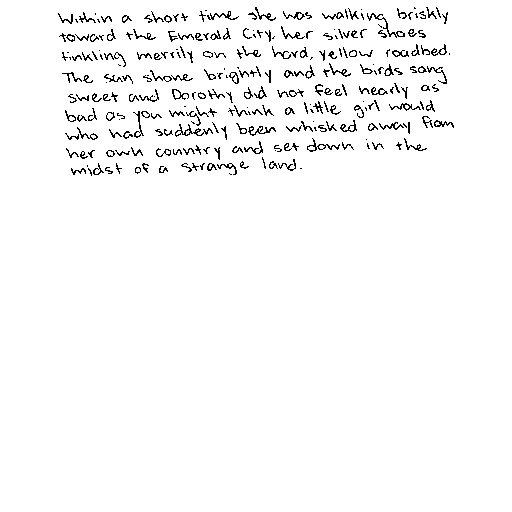 Within a short time she was walking briskly
toward the Emerald City, her silver shoes
tinkling merrily on the hard, yellow roadbed.
The sun shone brightly and the birds sang
sweet and Dorothy did not feel nearly as
bad as you might think a little girl would
who had suddenly been whisked away from
her own country and set down in the
midst of a strange land.